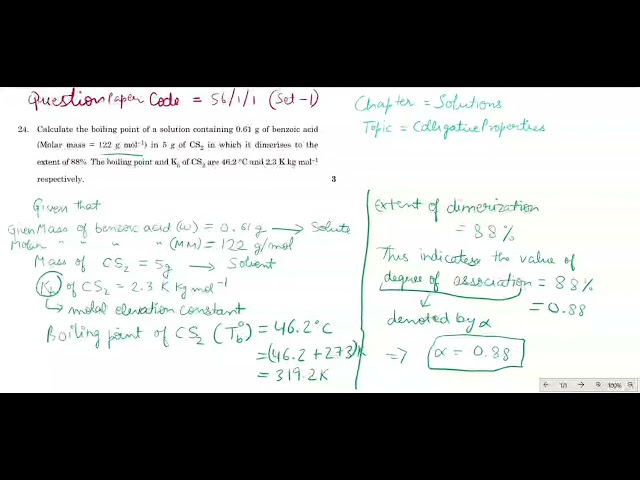 Question Paper Code = 56/1/1 (Set-1)
Chapter = Solutions
Topic = Colligative Properties
24. Calculate the boiling point of a solution containing 0.61 g of benzoic acid
(Molar mass = 122 g mol⁻¹) in 5 g of CS₂ in which it dimerises to the
extent of 88%. The boiling point and Kb of CS₂ are 46.2 °C and 2.3 K kg mol⁻¹
respectively. 3
Given that
Given Mass of benzoic acid (w) = 0.61g → Solute
Molar " " " " (MM) = 122 g/mol
Mass of CS₂ = 5g → Solvent
Kb of CS₂ = 2.3 K Kg mol⁻¹
↳ molal elevation constant
Boiling point of CS₂ (T°b) = 46.2°C
= (46.2 + 273)K
= 319.2K
Extent of dimerization
= 88%
This indicates the value of
degree of association = 88%
= 0.88
denoted by α
=> α = 0.88
1/1 100%